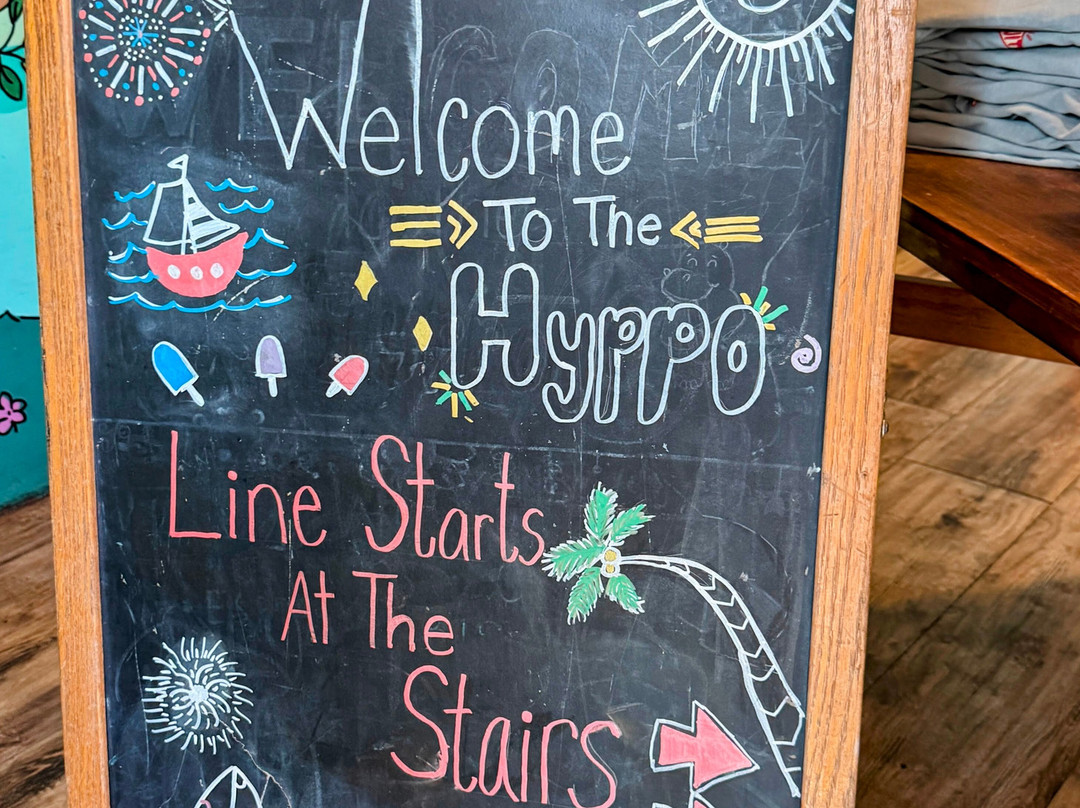 Welcome
To The
Hyppo
Line Starts
At The
Stairs